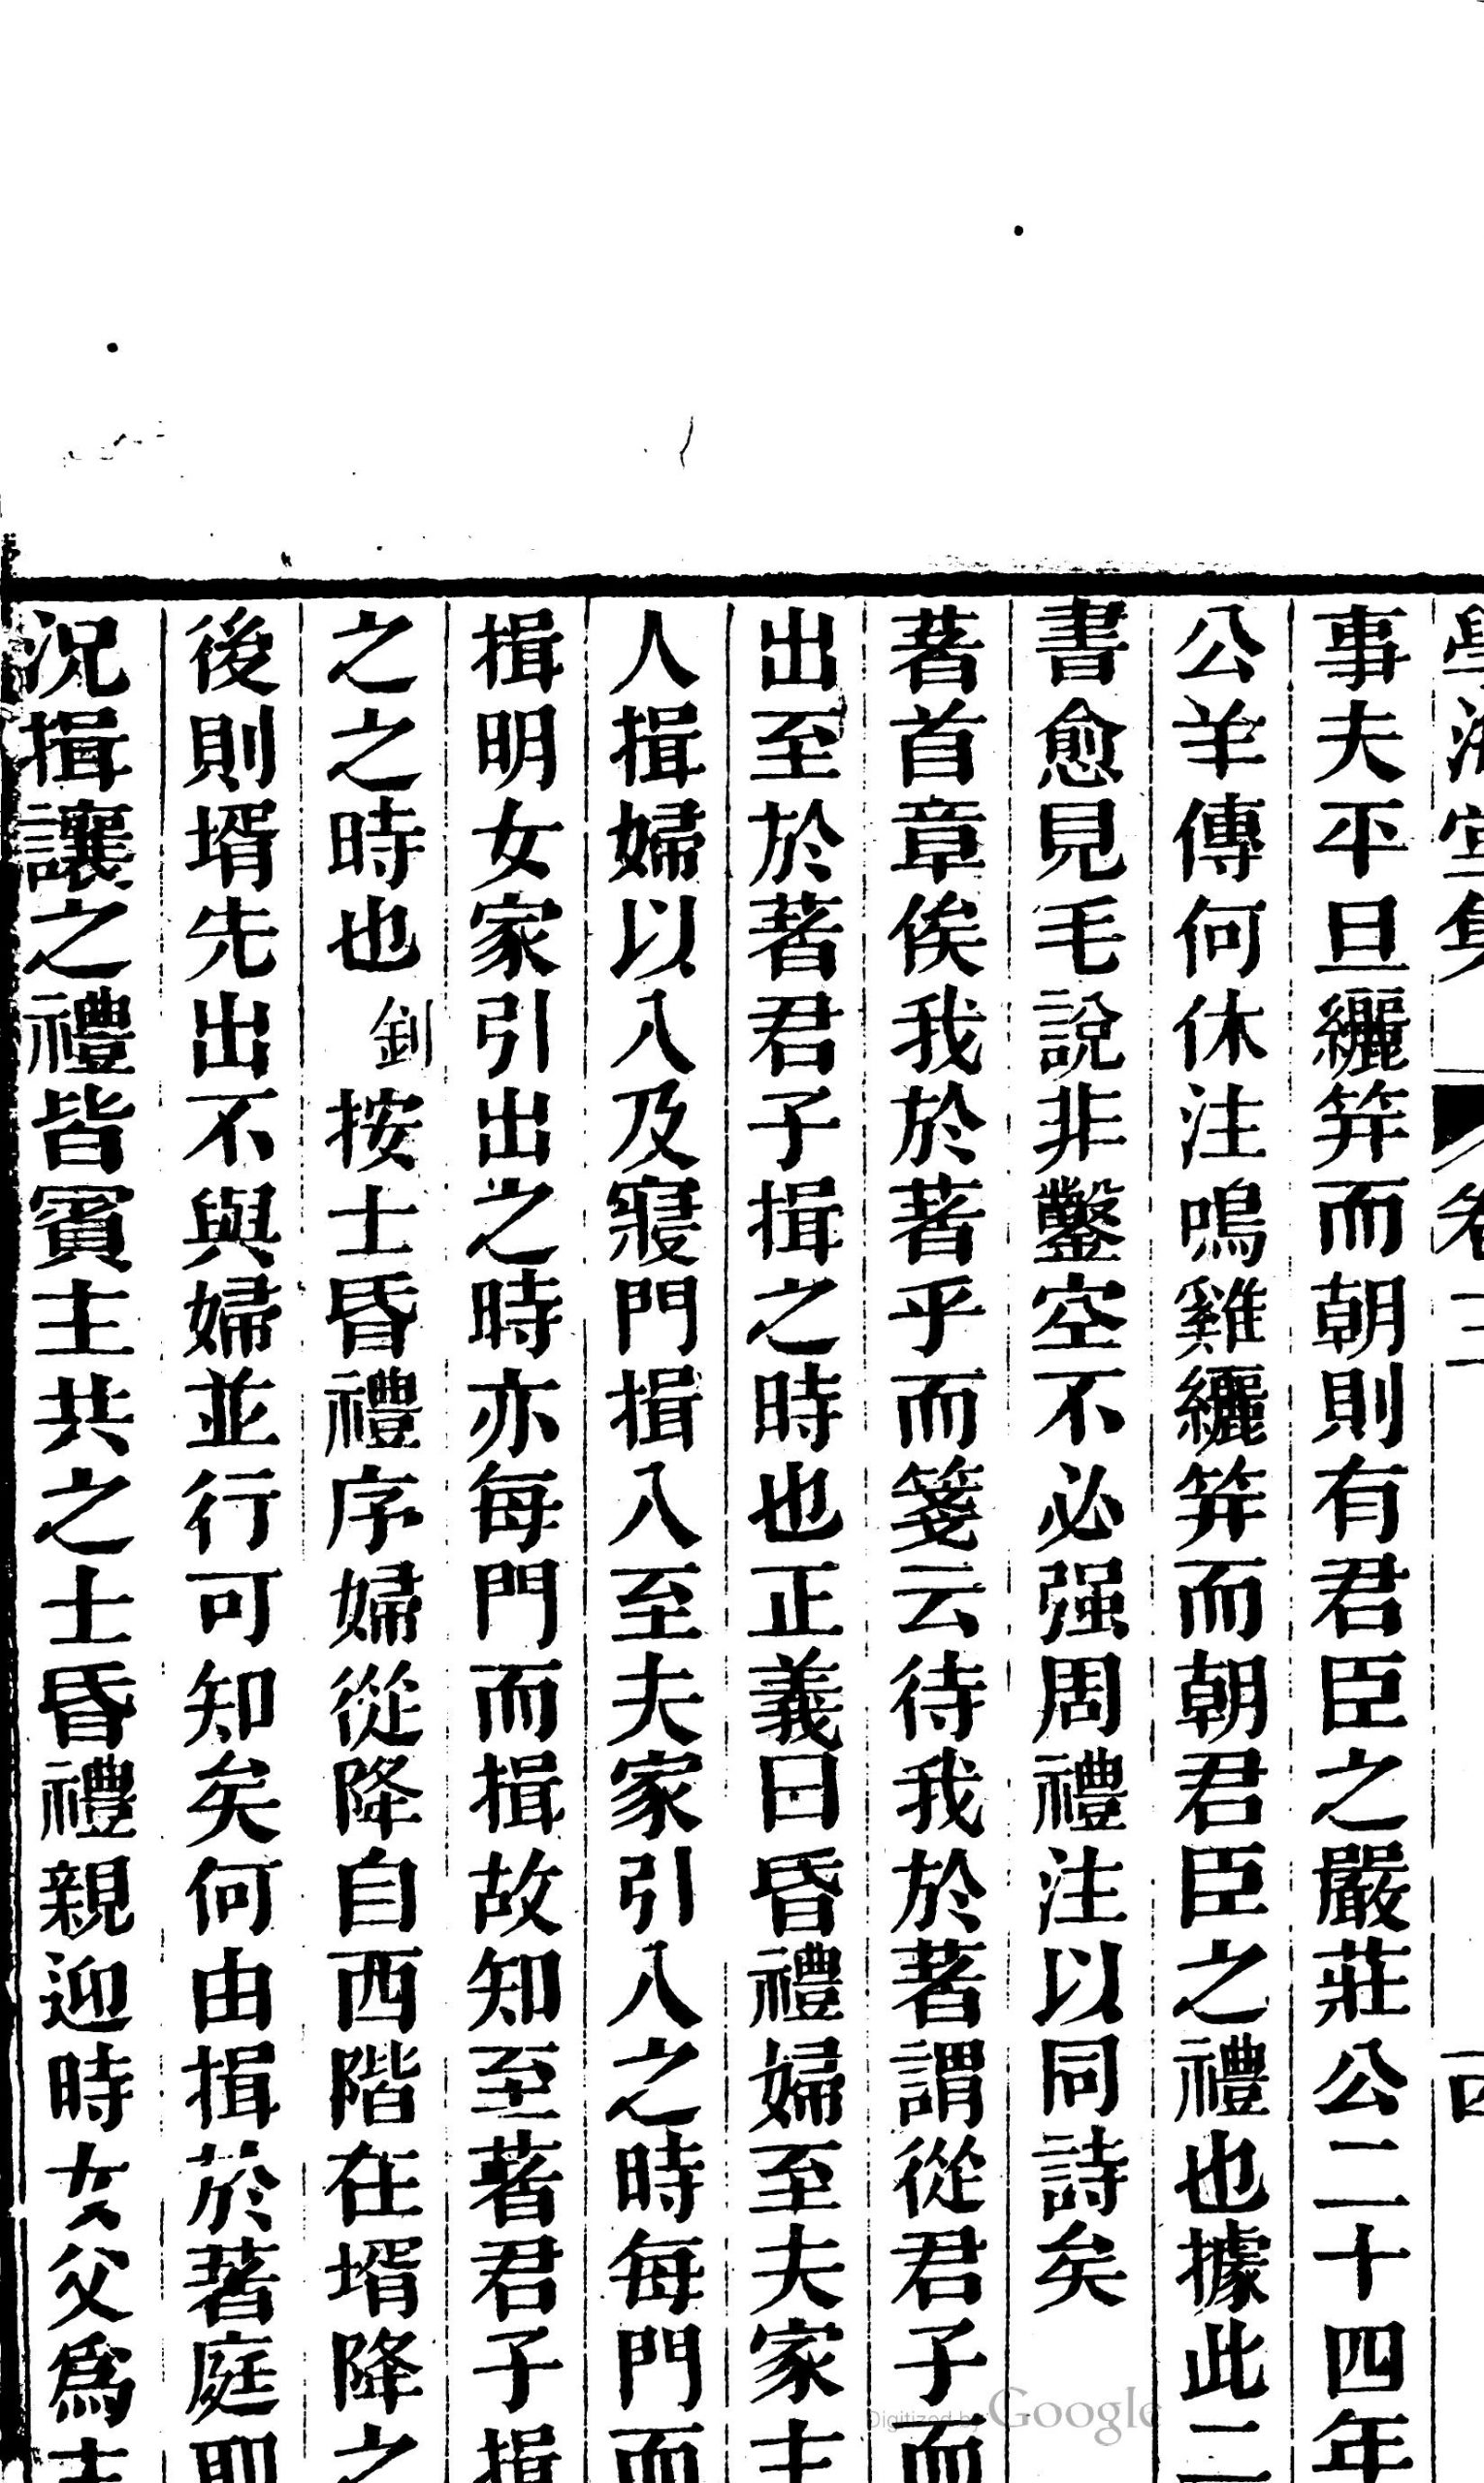 學海堂集 卷二 四
事夫平旦纚笄而朝則有君臣之嚴莊公二十四年
公羊傳何休注鳴雞纚笄而朝君臣之禮也據此二
書愈見毛說非鑿空不必强周禮注以同詩矣
著首章俟我於著乎而箋云待我於著謂從君子而
出至於著君子揖之時也正義曰昏禮婦至夫家主
人揖婦以入及寢門揖入至夫家引入之時每門而
揖明女家引出之時亦每門而揖故知至著君子揖
之之時也釗按士昏禮序婦從降自西階在壻降之
後則壻先出不與婦並行可知矣何由揖於著庭
況揖讓之禮皆賓主共之士昏禮親迎時女父爲主
Digitized by Google